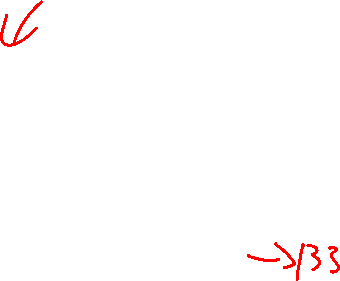 →133